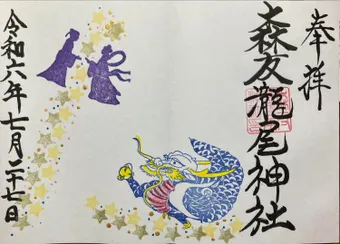 奉拝
森友龍尾神社
令和六年七月二十七日